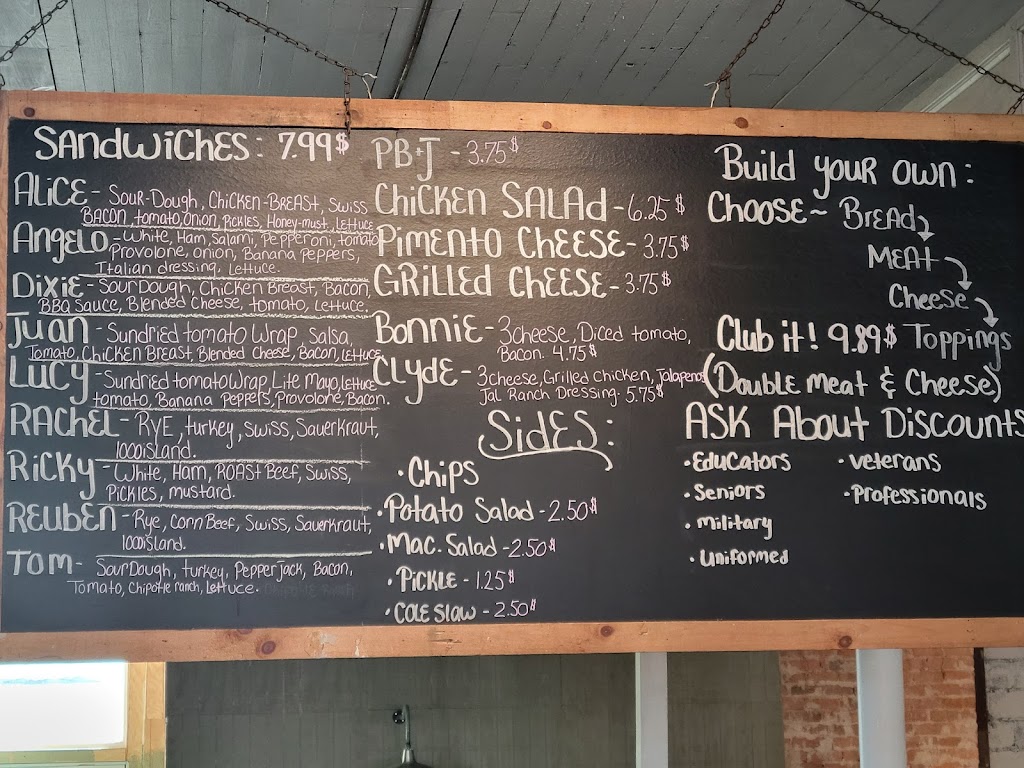 SANdWiCHES: 7.99$
ALiCE - Sour-Dough, CHiCKEN-BREAST, Swiss
BACON, tomato, onion, Pickles, Honey-must, LEttuce
ANGELO - White, Ham, Salami, Pepperoni, tomato
Provolone, onion, Banana Peppers,
Italian dressing, Lettuce.
DIXIE - SourDough, Chicken Breast, Bacon,
BBQ Sauce, Blended Cheese, tomato, Lettuce.
Juan - Sundried tomato Wrap, Salsa,
Tomato, Chicken Breast, Blended Cheese, Bacon, Lettuce
LUCY - Sundried tomato Wrap, Lite Mayo, Lettuce
tomato, Banana Peppers, Provolone, Bacon.
RACHEL - RYE, turkey, Swiss, Sauerkraut,
1000island.
RiCKY - White, Ham, ROAST Beef, Swiss,
Pickles, mustard.
REUBEN - Rye, Corn Beef, Swiss, Sauerkraut,
1000island.
TOM - SourDough, turkey, Pepper Jack, Bacon,
Tomato, Chipotle ranch, Lettuce.
PB+J - 3.75$
CHiCKEN SALAd - 6.25$
PiMENTO CHEESE - 3.75$
GRiLLEd CHEESE - 3.75$
BONNiE - 3cheese, Diced tomato,
Bacon. 4.75$
CLYdE - 3cheese, Grilled Chicken, Jalapenos
Jal Ranch Dressing. 5.75$
SidES:
• Chips
• Potato Salad - 2.50$
• Mac. Salad - 2.50$
• PiCKLE - 1.25$
• COLE Slaw - 2.50$
Build your own:
CHOOSE ~ BREAd
MEAt
Cheese
Toppings
Club it! 9.89$
(Double meat & Cheese)
ASK About DiscountS
• EduCators
• Seniors
• military
• uniformed
• veterans
• Professionals